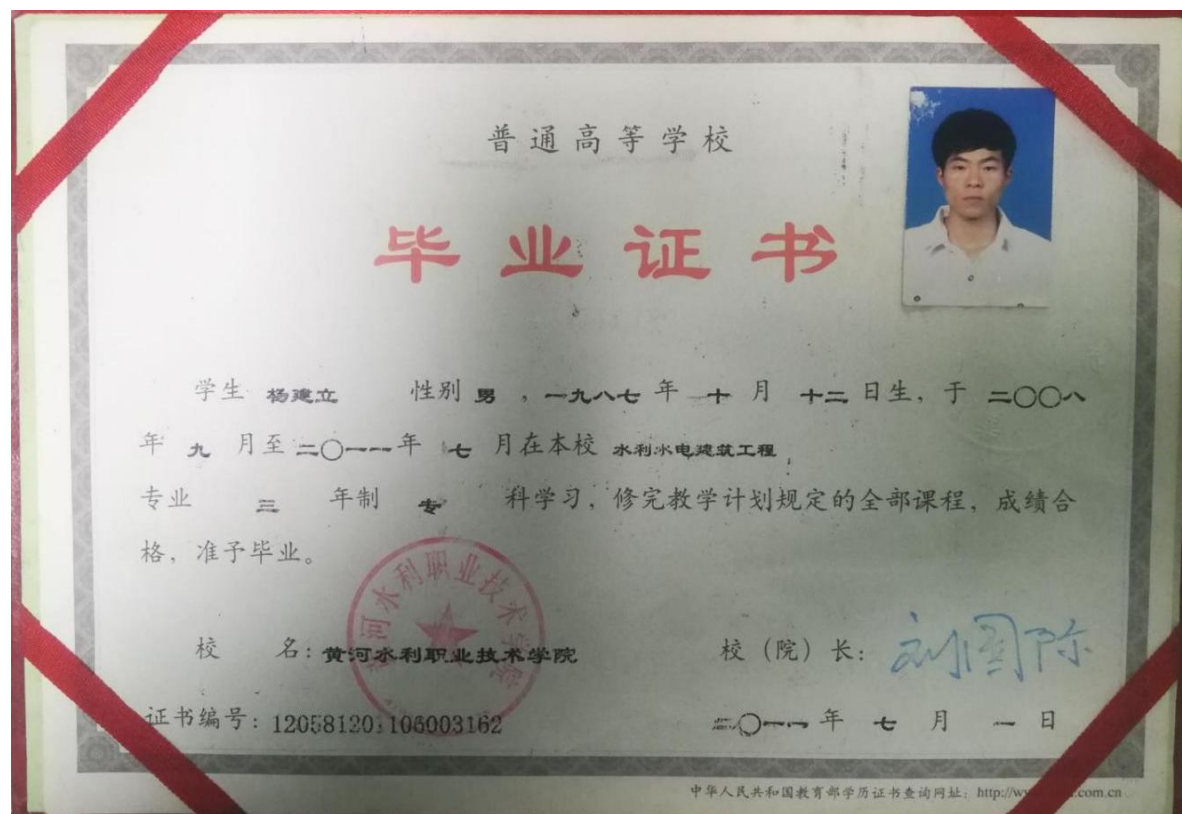 普通高等学校
毕业证书
学生 杨建立 性别 男 ，一九八七 年 十 月 十二 日生，于 二〇〇八
年 九 月至 二〇一一 年 七 月在本校 水利水电建筑工程
专业 三 年制 专 科学习，修完教学计划规定的全部课程，成绩合
格，准予毕业。
校 名：黄河水利职业技术学院
校（院）长：刘国际
证书编号：120581201106003162
二〇一一 年 七 月 一 日
黄河水利职业技术学院
中华人民共和国教育部学历证书查询网址：http://
com.cn